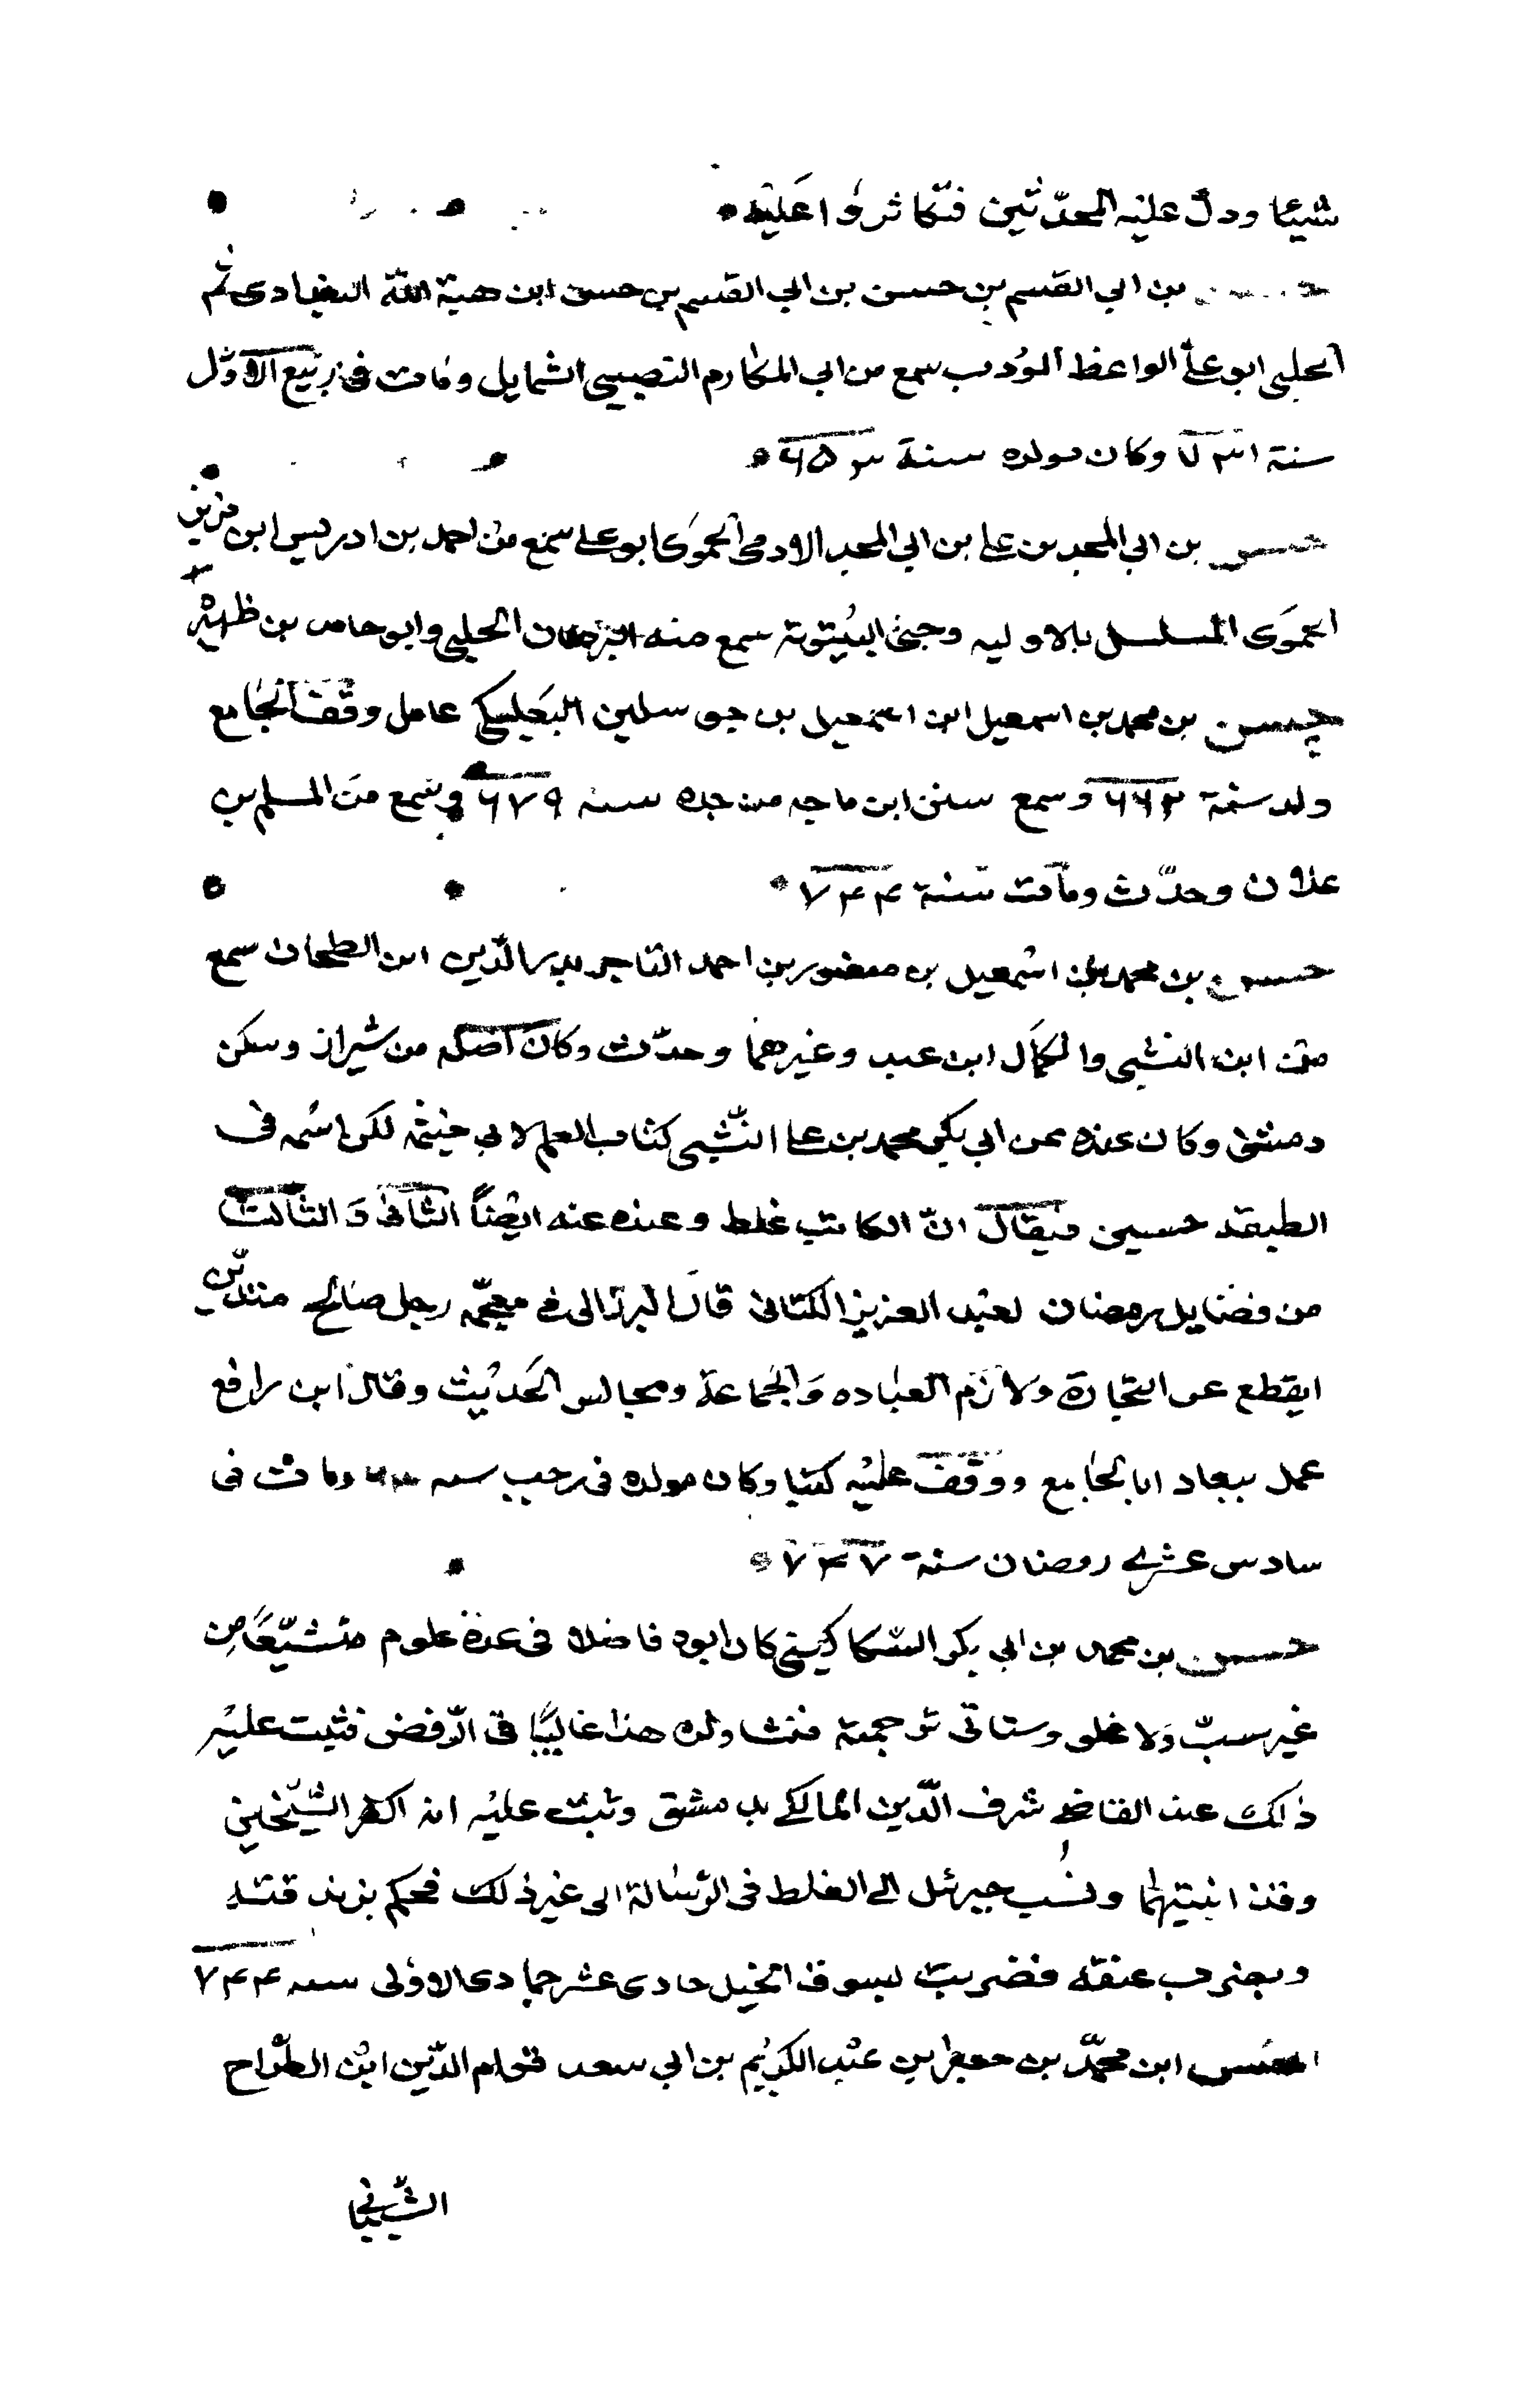 شيئا ودل عليه المحدّثين فتكاثروا عليه
بن ابي القسم بن حسن بن ابي القسم بن حسن ابن هبة الله البغدادي ثم
الحلبي ابو علي الواعظ المؤدب سمع من ابي المكارم النصيبي الشمايل ومات في ربيع الاوّل
سنة ٧٣١ وكان مولده سنة ٦٥٣
حسن بن ابي المجد بن علي بن ابي المجد الاودمي الحموي ابو علي سمع من احمد بن ادريس ابن مزيز
الحموي المسلسل بالاوليه وجزء البيتوتة سمع منه البرهان الحلبي وابو حامد بن ظهيرة
حسن بن محمد بن اسمعيل ابن اسمعيل بن جوسلين البعلبكي عامل وقف الجامع
ولد سنة ٦٦٢ وسمع سنن ابن ماجه من جده سنه ٦٧٩ وسمع من المسلم بن
علان وحدّث ومات سنة ٧٤٤
حسن بن محمد بن اسمعيل بن منصور بن احمد التاجر بدر الدّين ابن الطحان سمع
من ابن النشبي والكمال ابن عبد وغيرهما وحدّث وكان اصله من شيراز وسكن
دمشق وكان عنده عن ابي بكر محمد بن علي النّشبي كتاب العلم لابي خيثمه لكن اسمه في
الطبقه حسين فيقال انّ الكاتب غلط وعنده عنه ايضًا الثاني والثالث
من فضايل رمضان لعبد العزيز الكتاني قال البرزالي في معجمه رجل صالح متديّن
انقطع عن التجارة ولازم العباده والجماعة ومجالس الحديث وقال ابن رافع
عمل ميعادا بالجامع ووقف عليه كتبا وكان مولده في رجب سنه ومات في
سادس عشري رمضان سنة ٧٤٧
حسن بن محمد بن ابي بكر السكاكيني كان ابوه فاضلا في عدة علوم متشيّعًا من
غير سبّ ولا غلو وستاتي ترجمته فنشا ولده هذا غاليًا في الرّفض فثبت عليه
ذلك عند القاضي شرف الدّين المالكي بدمشق وثبت عليه انه اكفر الشّيخين
وقذف ابنتيهما ونسب جبرئل الى الغلط في الرّسالة الى غير ذلك فحكم بزندقته
وبضرب عنقه فضربت بسوق الخيل حادي عشر جمادي الاولى سنه ٧٤٤
الحسن ابن محمّد بن جعفر بن عبد الكريم بن ابي سعد قوام الدّين ابن الطرّاح
الشّيباني